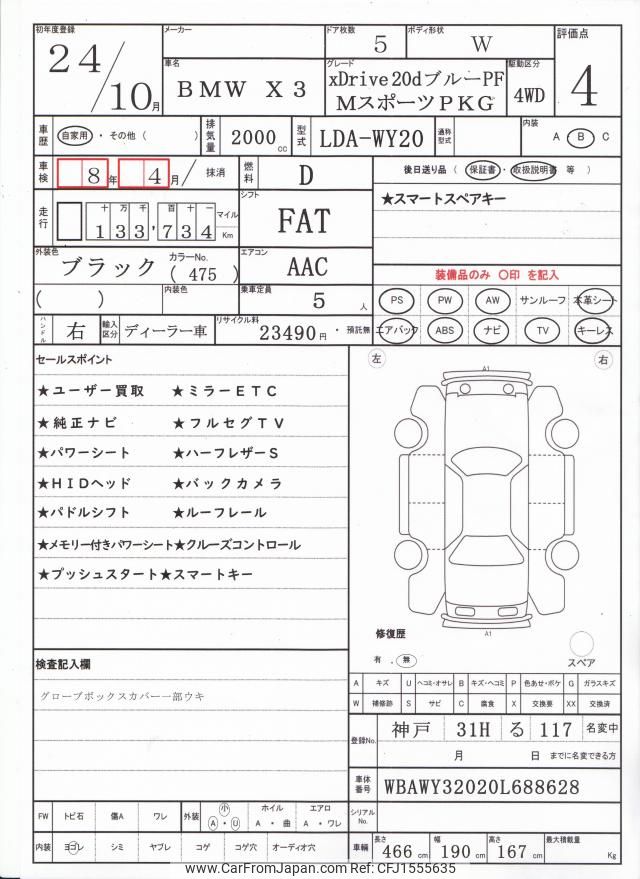 初年度登録
24/10月
メーカー
ドア枚数
5
ボディ形状
W
評価点
4
車名
BMW X3
グレード
xDrive20dブルーPF
MスポーツPKG
駆動区分
4WD
車歴
自家用 ・ その他 ( )
排気量
2000 cc
型式
LDA-WY20
通称型式
内装
A B C
車検
8年 4月 / 抹消
燃料
D
後日送り品 ( 保証書 ・ 取扱説明書 等 )
★スマートスペアキー
走行
十 万 千 百 十 一
133,734
マイル
Km
シフト
FAT
外装色
ブラック
カラーNo.
( 475 )
エアコン
AAC
装備品のみ 〇印 を記入
( )
内装色
乗車定員
5 人
PS PW AW サンルーフ 本革シート
エアバック ABS ナビ TV キーレス
ハンドル
右
輸入区分
ディーラー車
リサイクル料
23490円 ・ 預託無
セールスポイント
★ユーザー買取 ★ミラーETC
★純正ナビ ★フルセグTV
★パワーシート ★ハーフレザーS
★HIDヘッド ★バックカメラ
★パドルシフト ★ルーフレール
★メモリー付きパワーシート★クルーズコントロール
★プッシュスタート★スマートキー
左
右
A1
A1
修復歴
有 . 無
スペア
検査記入欄
グローブボックスカバー一部ウキ
A キズ U ヘコミ・オサレ B キズ・ヘコミ P 色あせ・ボケ G ガラスキズ
W 補修跡 S サビ C 腐食 X 交換要 XX 交換済
登録No.
神戸 31H る 117 名変中
月 日 までに名変できる方
車体番号
WBAWY32020L688628
FW トビ石 傷A ワレ
外装 小 A ・ U
ホイル
A ・ 曲
エアロ
A ・ ワレ
シリアルNo.
内装 ヨゴレ シミ ヤブレ コゲ コゲ穴 オーディオ穴
車輛
長さ
466 cm
幅
190 cm
高さ
167 cm
最大積載量
Kg
www.CarFromJapan.com Ref: CFJ1555635